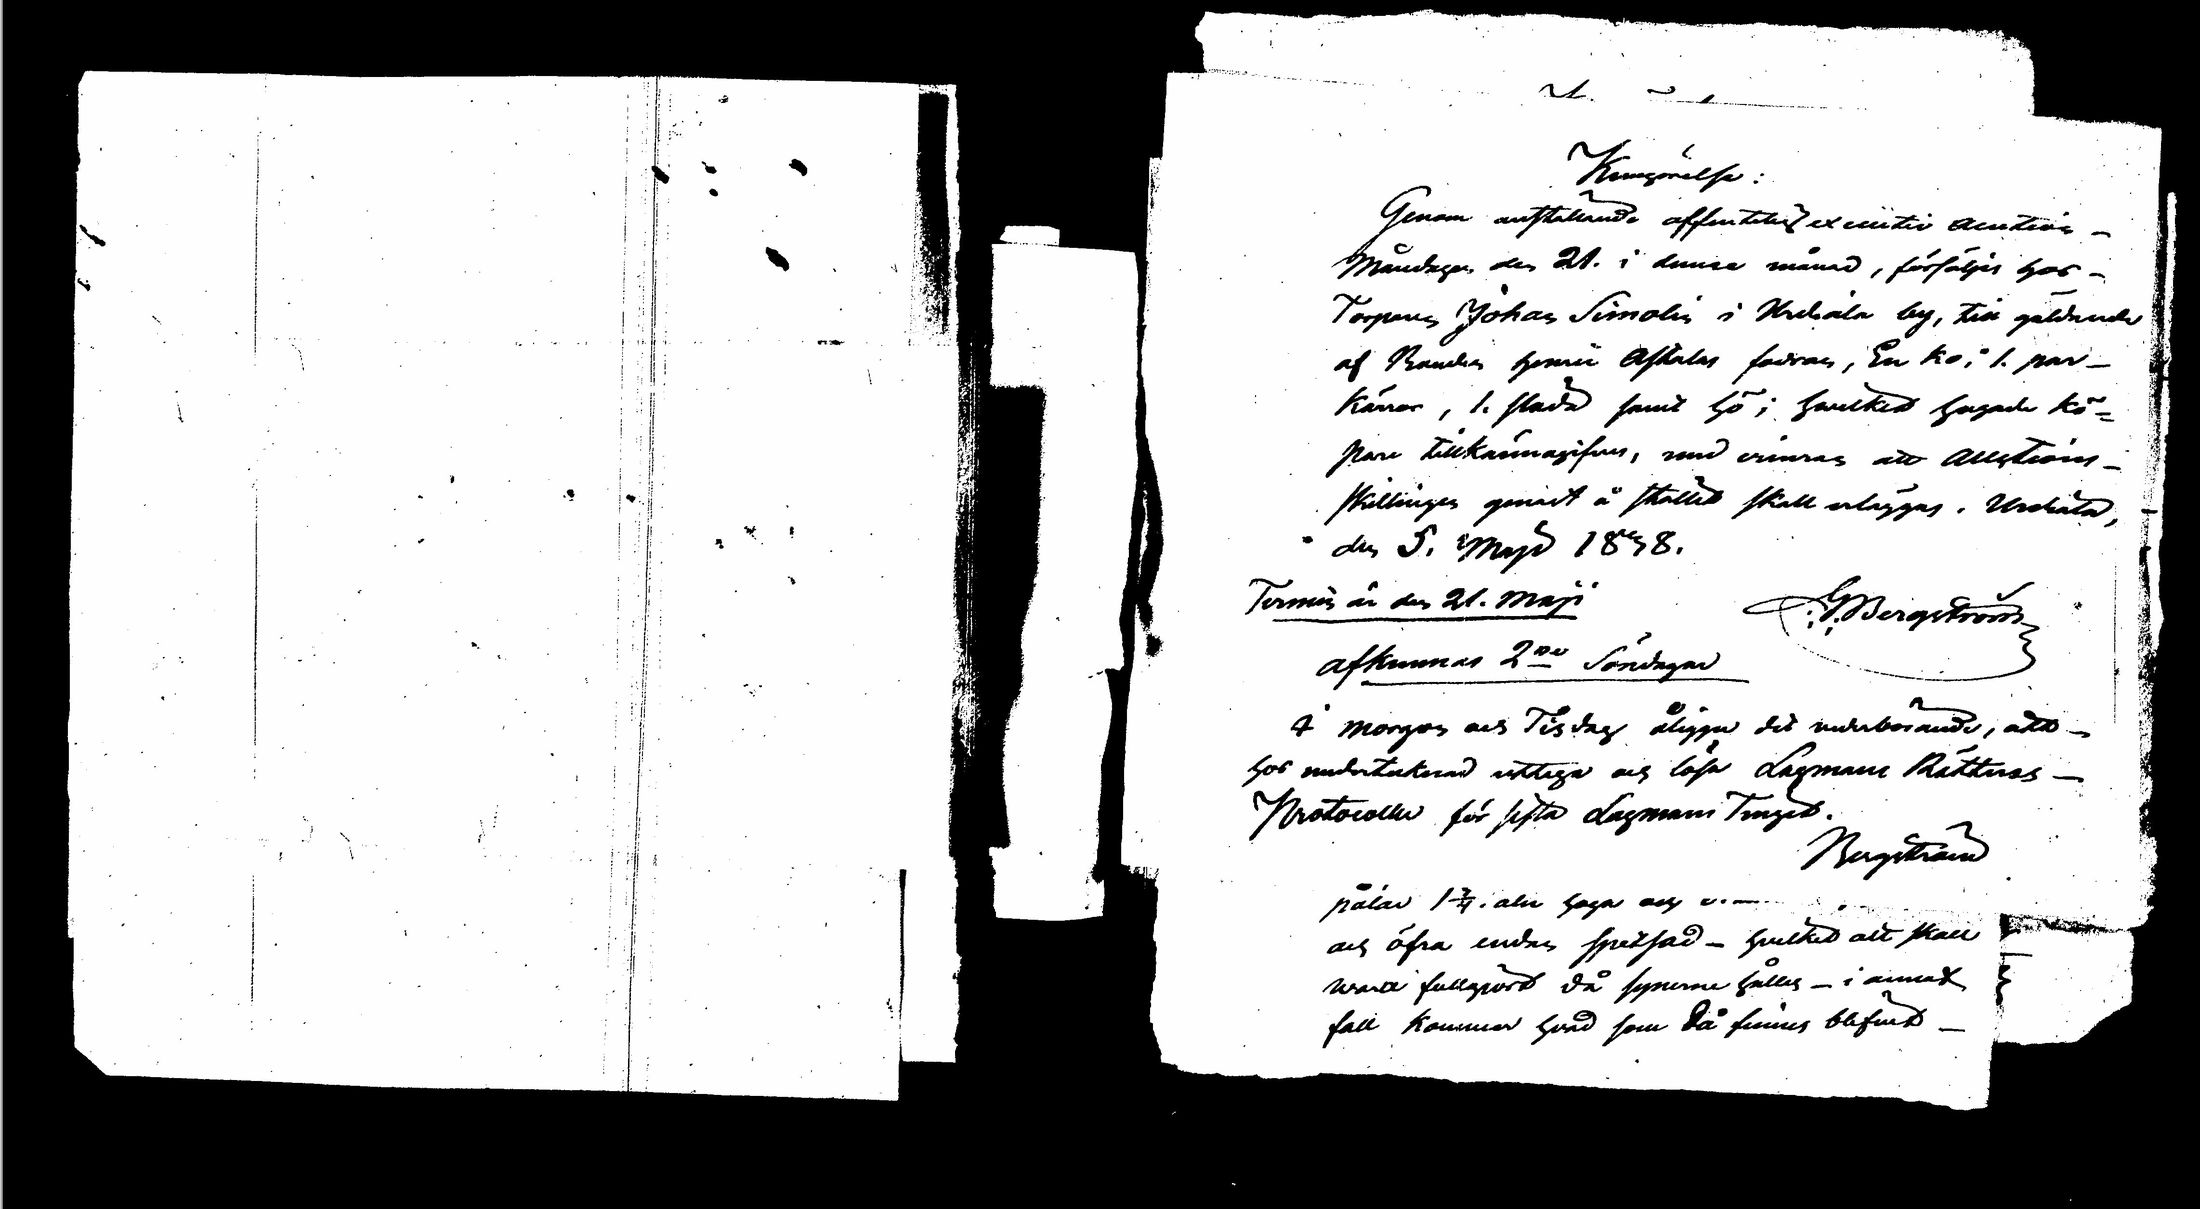 Kungörelse:
Genom anställande offentelig executiv auction
Måndagen den 21. i denna månad, försäljes hos
Torparen Johan Simolin i Urdiala by, till gäldande
af Bonden Henric Astalas fodran, En ko; 1. par
Kärror, 1. släda samt hö; hvilket hugade kö=
pare tillkännagifves, med erinran att Auctions
skillingen genast å stället skall erläggas. Urdiala,
den 5. Maji 1838.
Termin är den 21. Maji
Bergström
afkunnas 2ne Söndagar
I morgon och Tisdag åligger det vederbörande, att
hos undertecknad uttaga och lösa Lagmans Rättens
Protocoller för sista Lagmans Tinget.
Bergström
pålar 1 3/4. aln höga och
och öfra endan spetsad – hvilket allt skall
vara fullgjord då synerne hålles – i annat
fall kommer hvad som då finnes